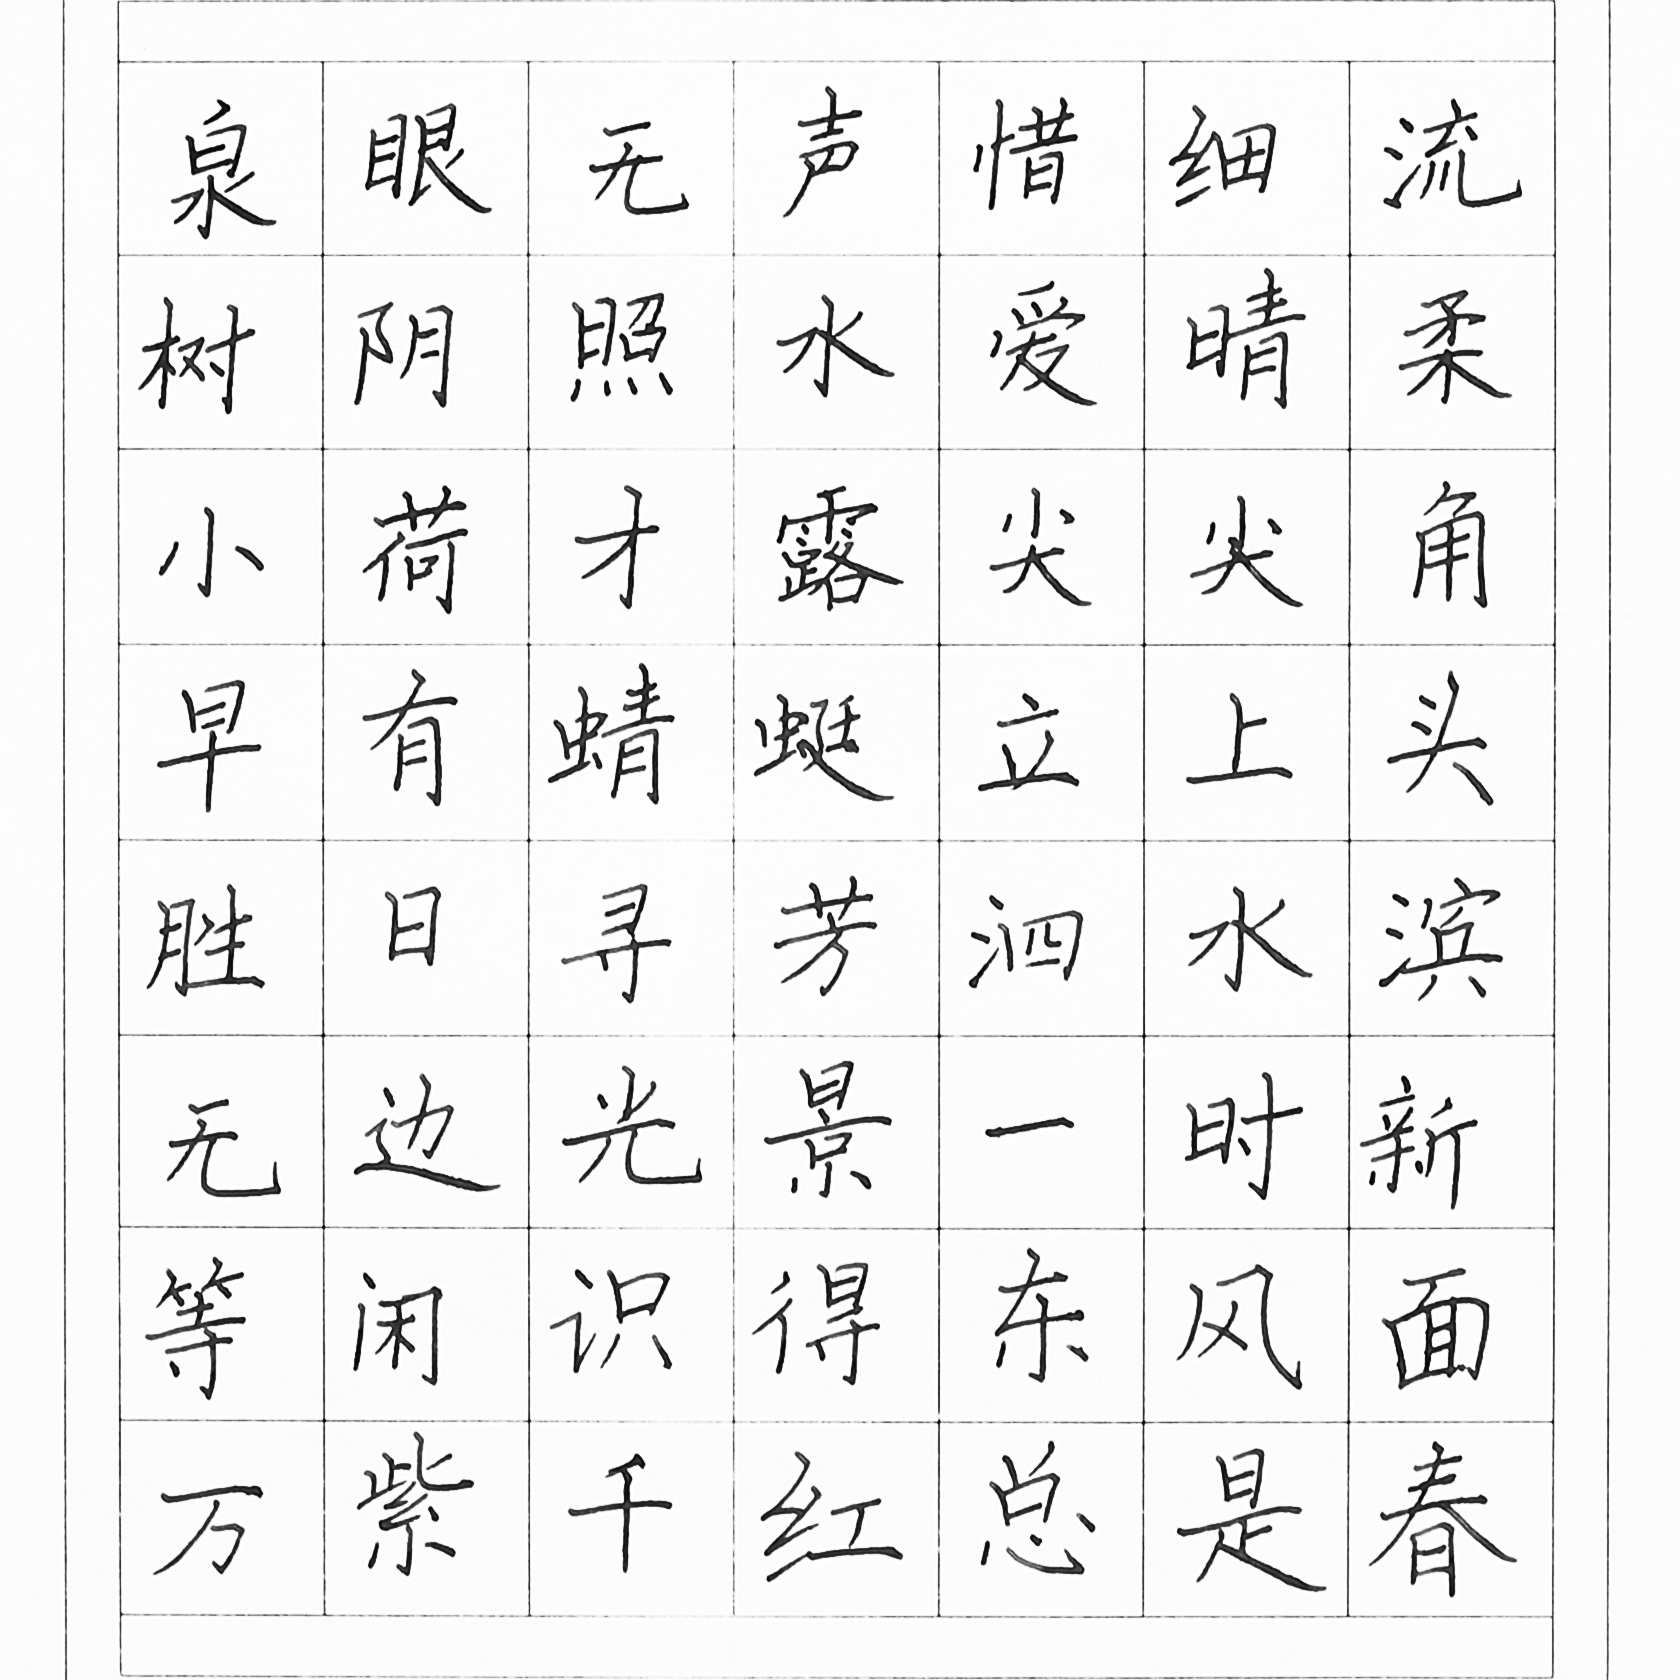 泉眼无声惜细流
树阴照水爱晴柔
小荷才露尖尖角
早有蜻蜓立上头
胜日寻芳泗水滨
无边光景一时新
等闲识得东风面
万紫千红总是春